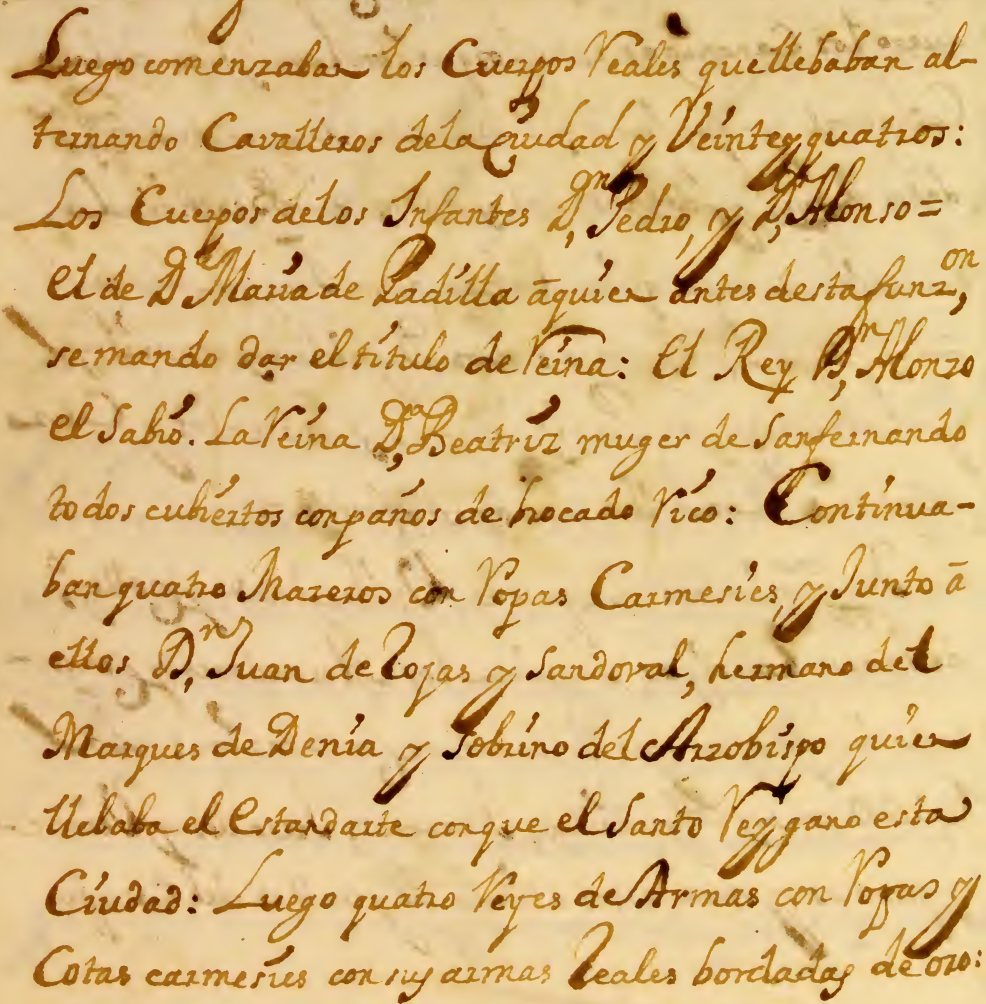 Luego comenzaban los Cuerpos Reales que llebaban al-
ternando Cavalleros dela Ciudad y Veinteyquatros:
Los Cuerpos delos Infantes D,ⁿ Pedro, y D,ⁿ Alonso=
el de D,ª Maria de Padilla āquien antes desta funz,ᵒⁿ
semando dar eltítulo de Reina: El Rey D,ⁿ Alonzo
el Sabio. La Reina D,ª Beatriz muger de Sanfernando
todos cubiertos conpaños de brocado Rico: Continua-
ban quatro Mazeros con Ropas Carmesies, y Junto ā
ellos D,ⁿ Juan de Rojas y Sandoval, hermano del
Marques de Denia y Sobrino del Arzobispo quien
llebaba el Estandarte conque el Santo Rey gano esta
Ciudad: Luego quatro Reyes de Armas con Ropas y
Cotas carmesies con sus armas Reales bordadas de oro: